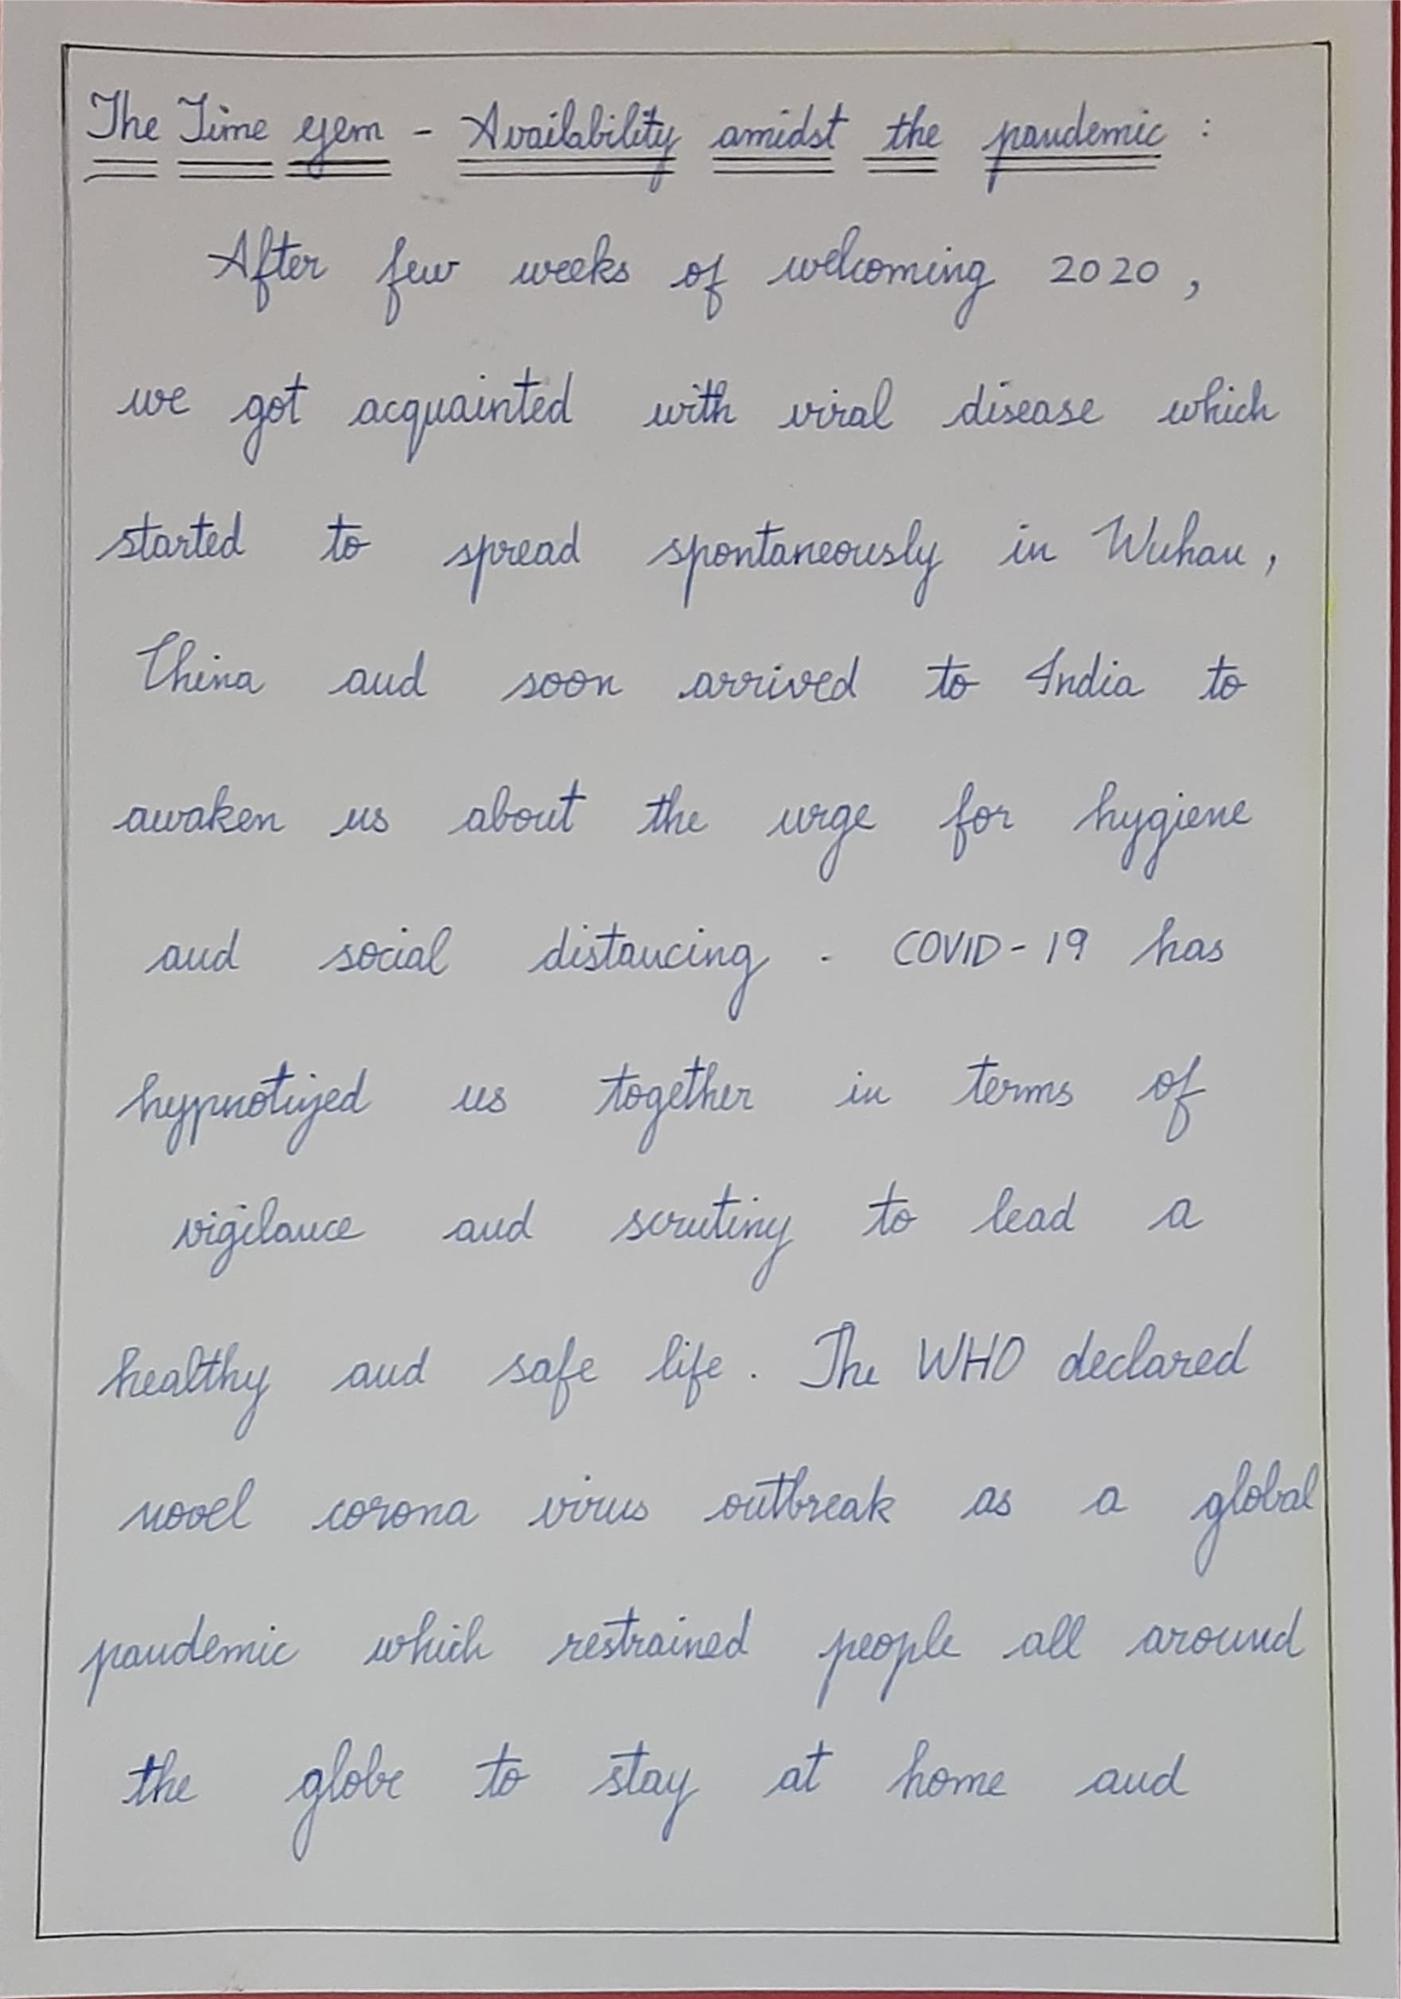 The Time gem - Availability amidst the pandemic :
After few weeks of welcoming 2020 ,
we got acquainted with viral disease which
started to spread spontaneously in Wuhan ,
China and soon arrived to India to
awaken us about the urge for hygiene
and social distancing . COVID-19 has
hypnotized us together in terms of
vigilance and scrutiny to lead a
healthy and safe life . The WHO declared
novel corona virus outbreak as a global
pandemic which restrained people all around
the globe to stay at home and